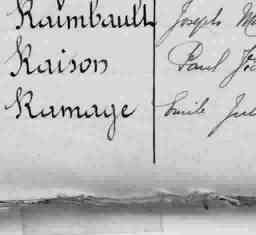 Raimbault Joseph M
Raison Paul
Ramage Emile Jul